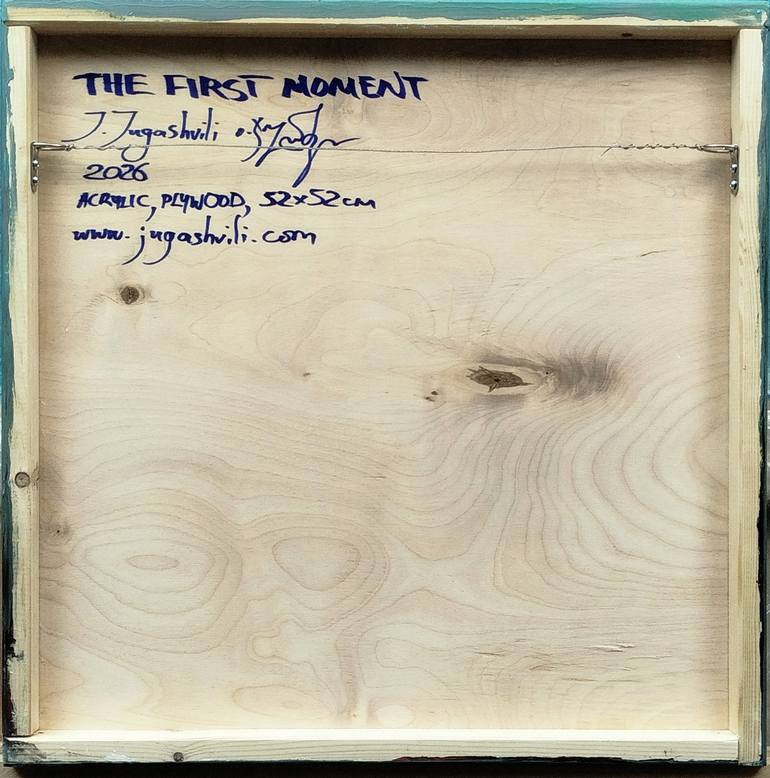 THE FIRST MOMENT
J. Jugashvili
2026
ACRYLIC, PLYWOOD, 52x52cm
www.jugashvili.com